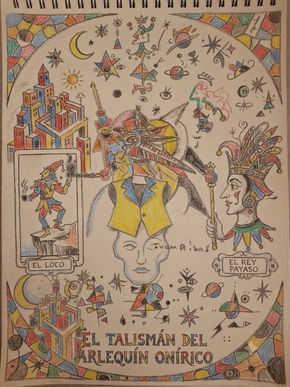 Ivan Ribas
EL LOCO
EL REY
PAYASO
EL TALISMÁN DEL
ARLEQUÍN ONÍRICO